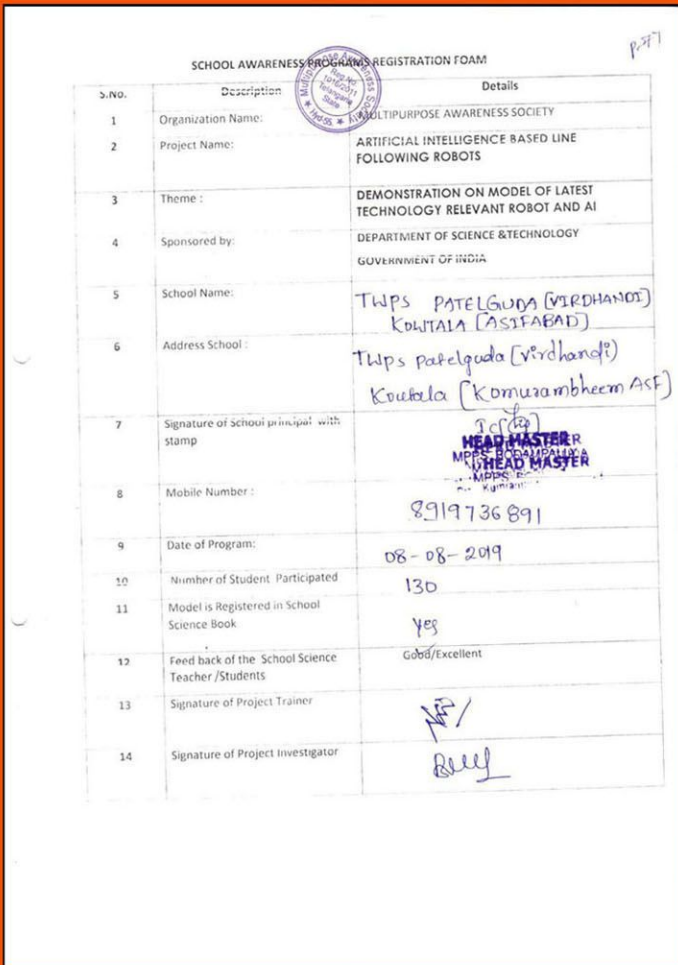 P-77
SCHOOL AWARENESS PROGRAMS REGISTRATION FOAM
Multipurpose Awareness Society
Reg.No
1016/2011
Telangana
State
Hyd-55.
S.No. Description Details
1 Organization Name: MULTIPURPOSE AWARENESS SOCIETY
2 Project Name: ARTIFICIAL INTELLIGENCE BASED LINE
FOLLOWING ROBOTS
3 Theme : DEMONSTRATION ON MODEL OF LATEST
TECHNOLOGY RELEVANT ROBOT AND AI
4 Sponsored by: DEPARTMENT OF SCIENCE &TECHNOLOGY
GOVERNMENT OF INDIA
5 School Name: TWPS PATELGUDA [VIRDHANDI]
KOWTALA [ASIFABAD]
6 Address School : TWPS patelguda [virdhandi)
Koutala [Komurambheem ASF]
7 Signature of School principal with
stamp
HEAD MASTER
HEAD MASTER
8 Mobile Number : 8919736891
9 Date of Program: 08-08-2019
10 Number of Student Participated 130
11 Model is Registered in School
Science Book yes
12 Feed back of the School Science
Teacher /Students Good/Excellent
13 Signature of Project Trainer
14 Signature of Project Investigator